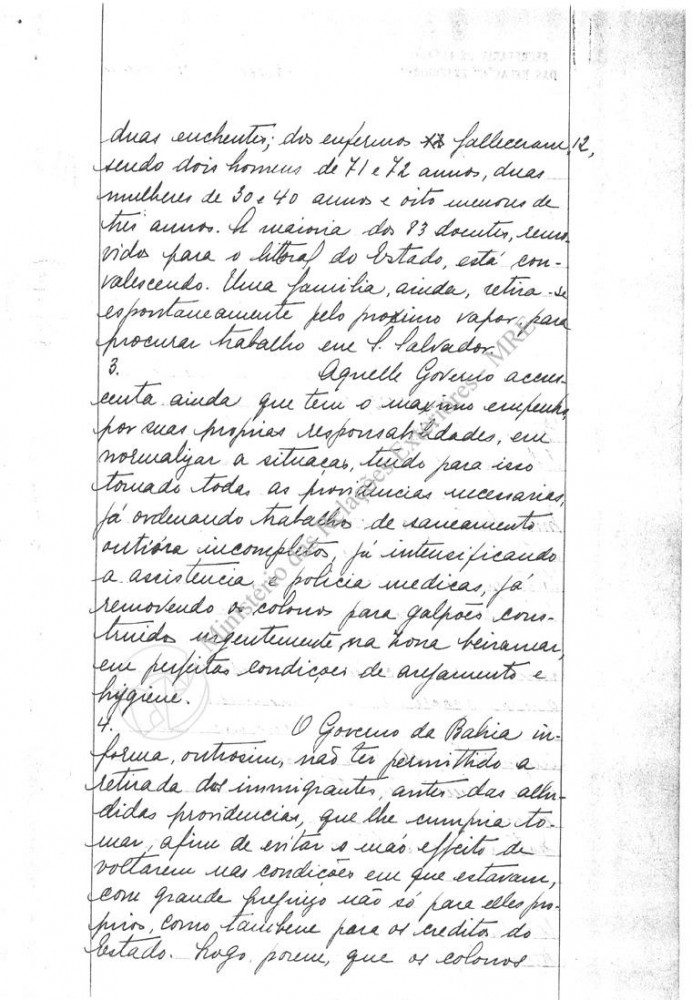 duas enchentes; dos enfermos falleceram 12,
sendo dois homens de 71 e 72 annos, duas
mulheres de 30 e 40 annos e oito menores de
tres annos. A maioria dos 83 doentes, remo-
vidos para o littoral do Estado, está con-
valescendo. Uma familia, ainda, retira-se
espontaneamente pelo proximo vapor, para
procurar trabalho em S. Salvador.
3. Aquelle Governo accres-
centa ainda que tem o maximo empenho,
por suas proprias responsabilidades, em
normalizar a situaçao, tendo para isso
tomado todas as providencias necessarias,
já ordenando trabalhos de saneamento
outróra incompletos, já intensificando
a assistencia e policia medicas, já
removendo os colonos para galpões cons-
truidos urgentemente na zona beiramar,
em perfeitas condições de arejamento e
hygiene.
4. O Governo da Bahia in-
forma, outrosim, não ter permittido a
retirada dos immigrantes, antes das allu-
didas providencias, que lhe cumpria to-
mar, afim de evitar o mao effeito de
voltarem nas condições em que estavam,
com grande prejuizo não só para elles pro-
prios, como tambem para os creditos do
Estado. Logo, porem, que os colonos
Ministério das Relações Exteriores - MRE